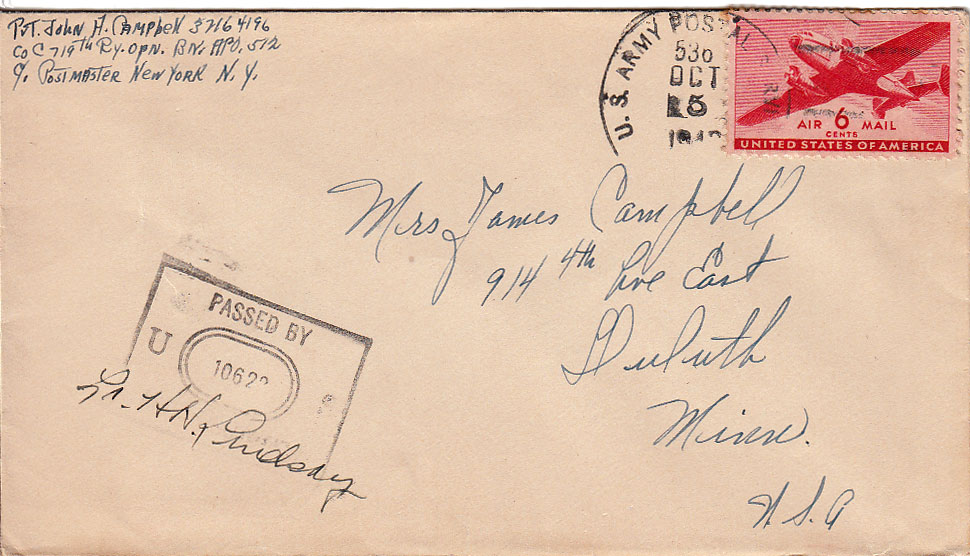 Pvt. John H. Campbell 37164196
Co C 719th Ry. Opn. Bn. APO. 512
℅ Postmaster New York N. Y.
U. S. ARMY POSTAL
536
OCT
5
194
AIR 6 MAIL
CENTS
UNITED STATES OF AMERICA
Mrs James Campbell
914 4th Ave East
Duluth
Minn.
U.S.A
PASSED BY
U
1062
Lt. H.W. Lindsay